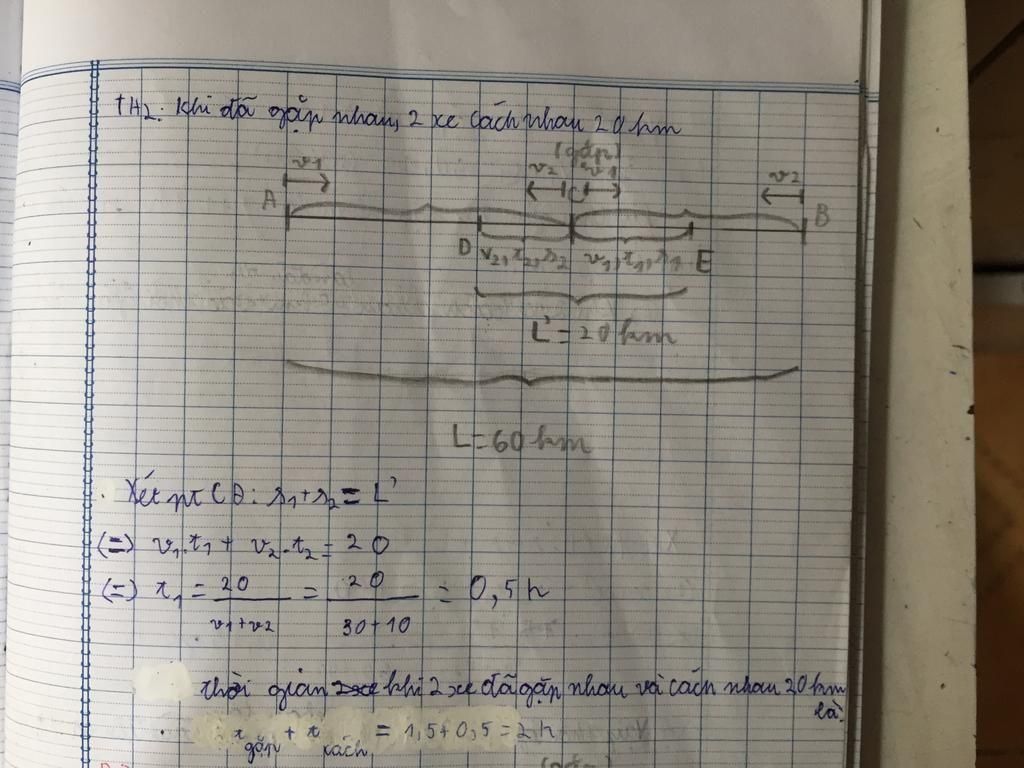 TH2: Khi đã gặp nhau, 2 xe cách nhau 20 km
(gặp)
v1 v2 v1 v2
A C B
D v2, t2, s2 v1, t1, s1 E
L' = 20 km
L = 60 km
Xét pt CĐ: s1 + s2 = L'
(=) v1.t1 + v2.t2 = 20
(=) t1 = 20 / v1+v2 = 20 / 30+10 = 0,5 h
thời gian khi 2 xe đã gặp nhau và cách nhau 20 km
là:
t gặp + t cách = 1,5 + 0,5 = 2 h